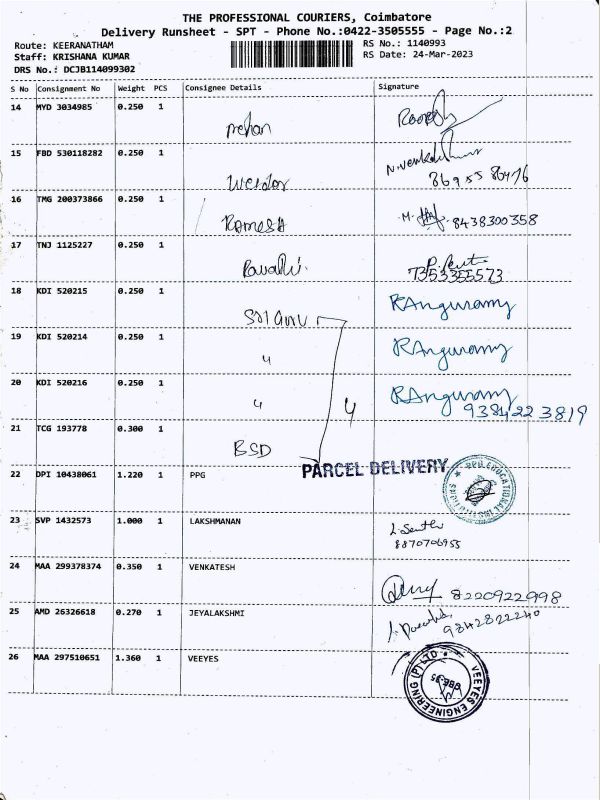 THE PROFESSIONAL COURIERS, Coimbatore
Delivery Runsheet - SPT - Phone No.:0422-3505555 - Page No.:2
Route: KEERANATHAM
RS No.: 1140993
Staff: KRISHANA KUMAR
RS Date: 24-Mar-2023
DRS No.: DCJB114099302
S No Consignment No Weight PCS Consignee Details Signature
14 MYD 3034985 0.250 1
15 FBD 530118282 0.250 1
86955 86476
16 TMG 200373866 0.250 1
RAMESH M. 8438300358
17 TNJ 1125227 0.250 1
7353355573
18 KDI 520215 0.250 1
SRI GURU RAnguramy
19 KDI 520214 0.250 1
4 RAnguramy
20 KDI 520216 0.250 1
4 4 RAnguramy
9384223819
21 TCG 193778 0.300 1
BSD
PARCEL DELIVERY
22 DPI 10438061 1.220 1 PPG
PPG EDUCATIONAL
23 SVP 1432573 1.000 1 LAKSHMANAN
8870706955
24 MAA 299378374 0.350 1 VENKATESH
8220922998
25 AMD 26326618 0.270 1 JEYALAKSHMI
9842822240
26 MAA 297510651 1.360 1 VEEYES
VEEYES ENGINEERING (P) LTD